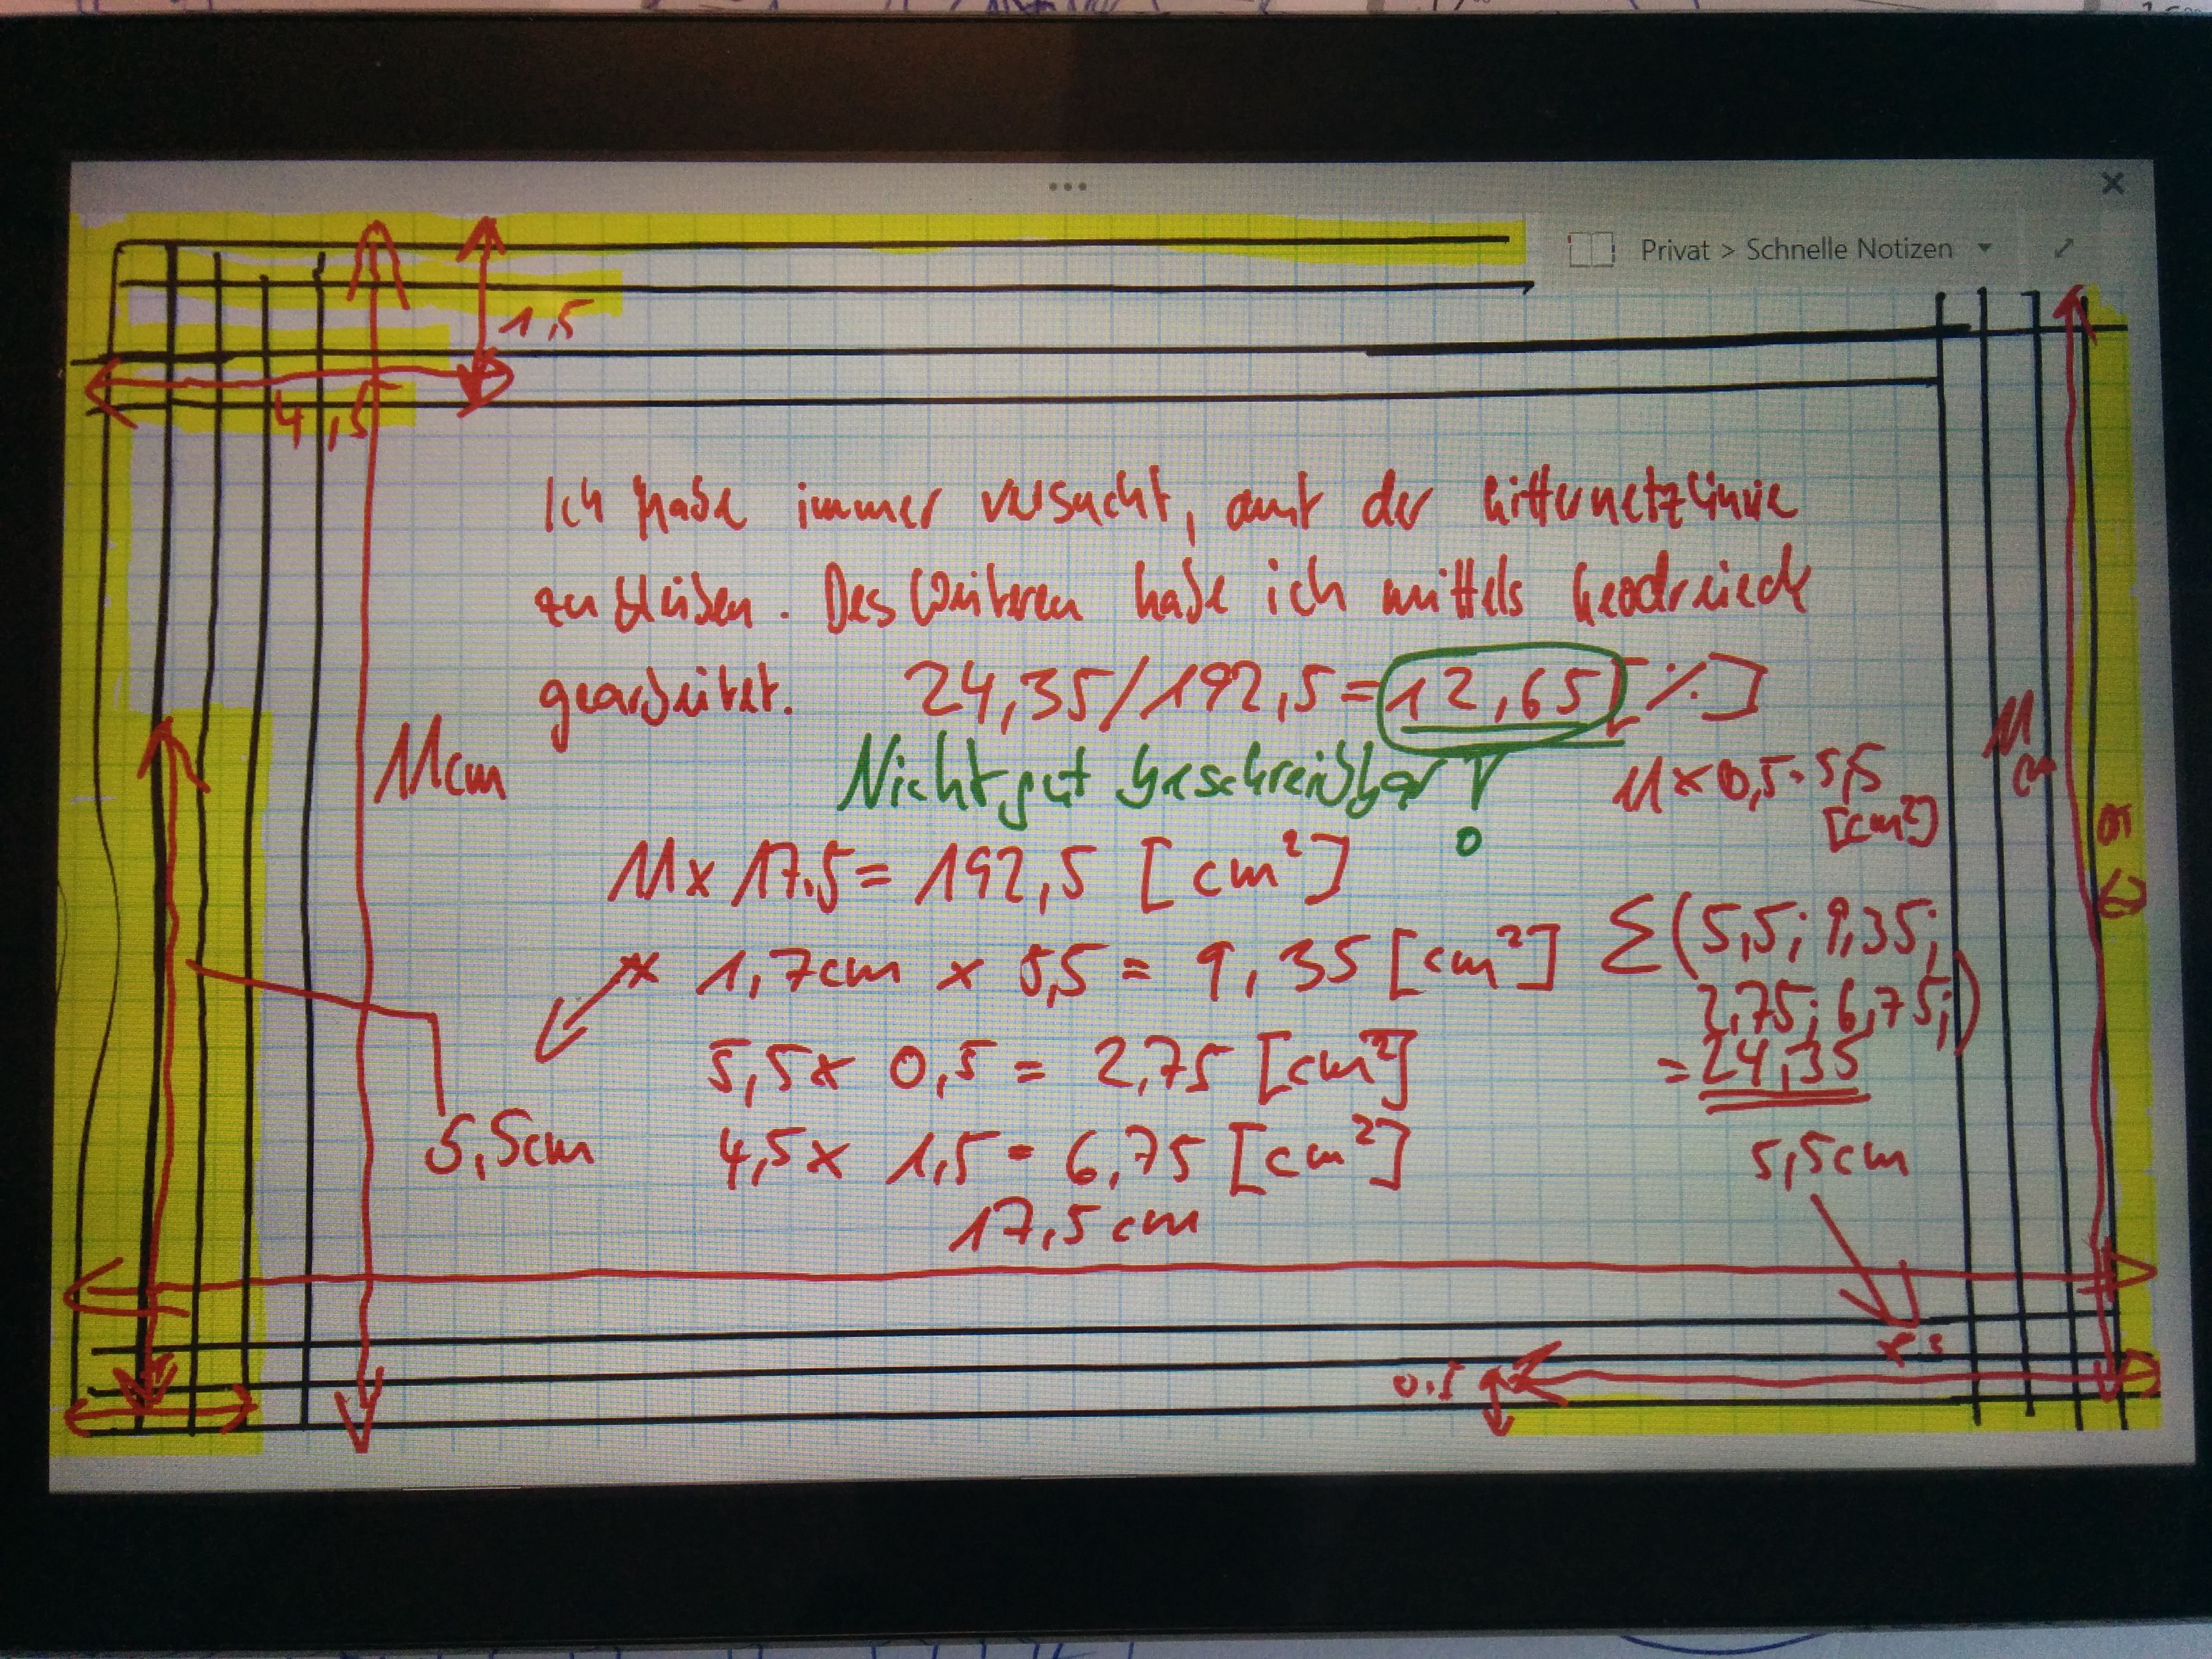 Privat > Schnelle Notizen
1,5
4,5
Ich habe immer versucht, auf der Gitternetzlinie
zu bleiben. Des Weiteren habe ich mittels Geodreieck
gearbeitet. 24,35/192,5=12,65[%]
11cm
Nicht gut beschreibbar!
11x0,5=5,5
[cm²]
11
cm
11x17.5=192,5 [cm²]
x 1,7cm x 5,5 = 9,35 [cm²]
Σ(5,5; 9,35;
2,75; 6,75;)
=24,35
5,5x 0,5 = 2,75 [cm²]
5,5cm
4,5x 1,5 = 6,75 [cm²]
5,5cm
17,5cm
0.5